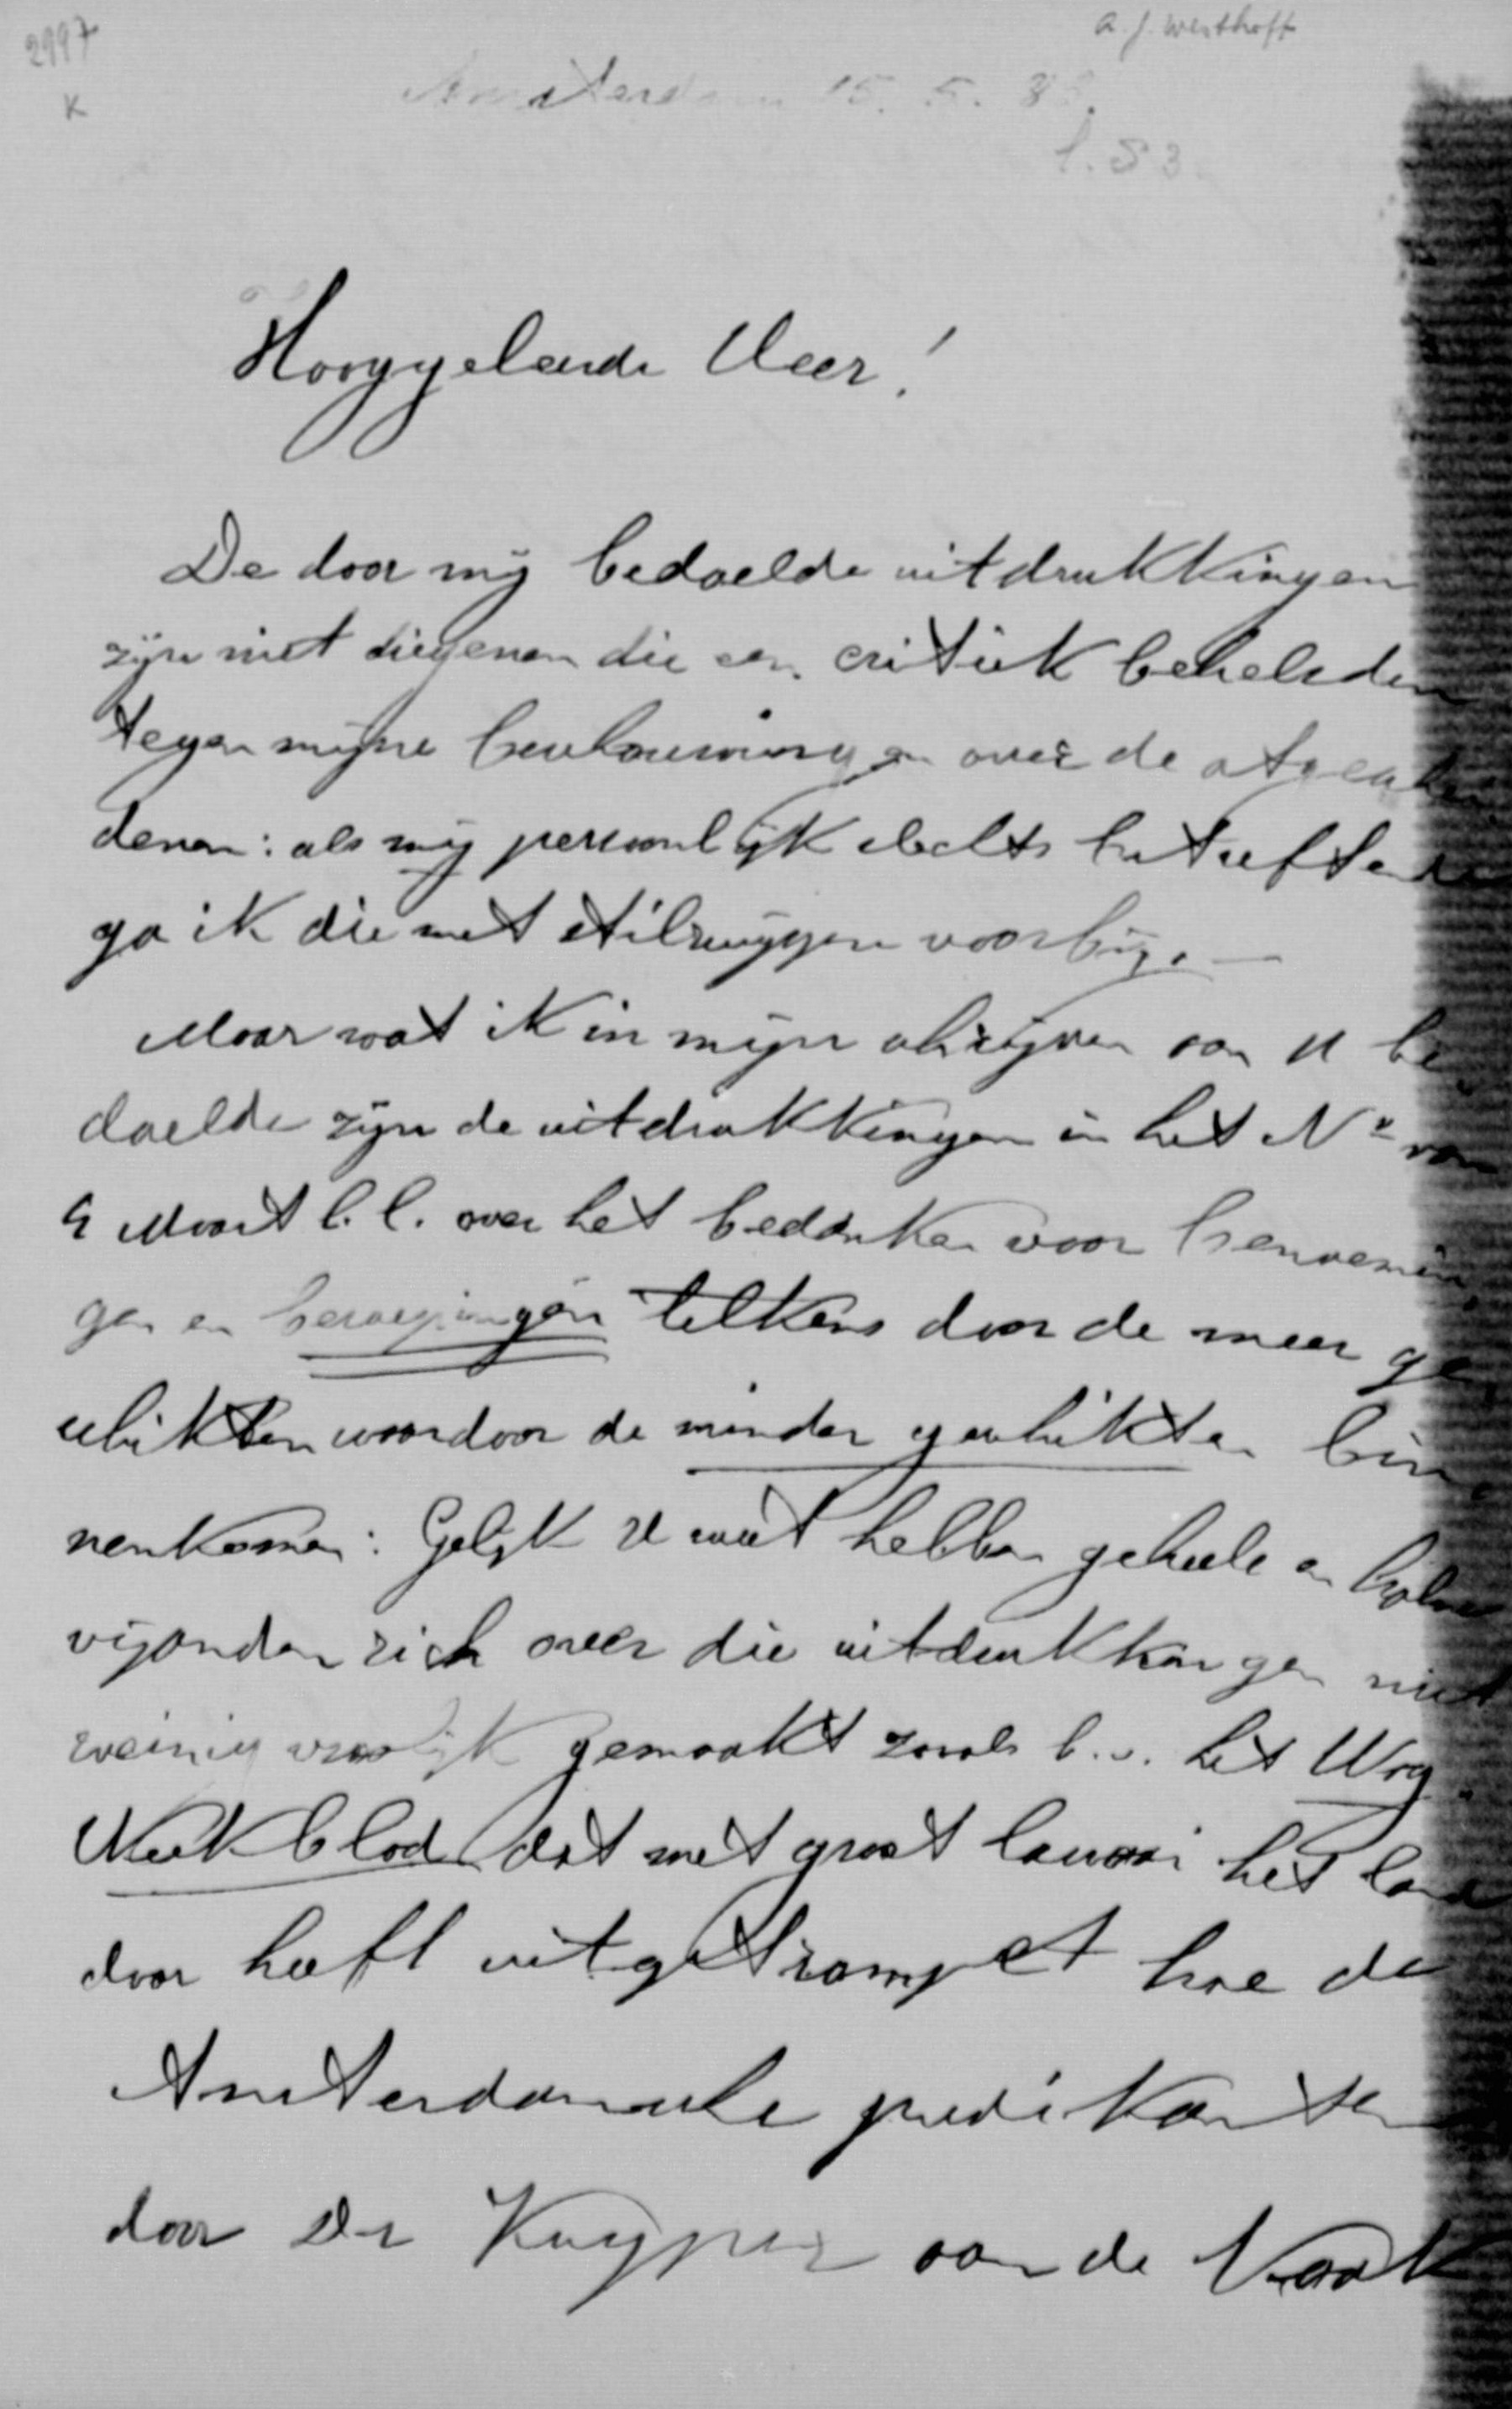 2997
K
a. J. Westhoff
Amsterdam 15. 5. 83.
Hooggeleerde Heer!
De door mij bedoelde uitdrukkingen
zijn niet diegenen die een critiek behelsden
tegen mijne beschouwingen over de
denen: als mij persoonlijk slechts betreffende
ga ik die met stilzwijgen voorbij. —
Maar wat ik in mijn schrijven aan U be
doelde zijn de uitdrukkingen in het No van
4 Maart l.l. over het bedanken voor benoemin
gen en beroepingen telkens door de meer ge
schikten waardoor de minder geschikten bin
nenkomen: Gelijk U weet hebben geheele en halve
vijanden zich over die uitdrukkingen niet
weinig vroolijk gemaakt zooals b.v. het
Weekblad dat met groot lawaai het land
door heeft uitgetrompet hoe de
Amsterdamsche predikanten
door Dr Kuyper aan de Kaak